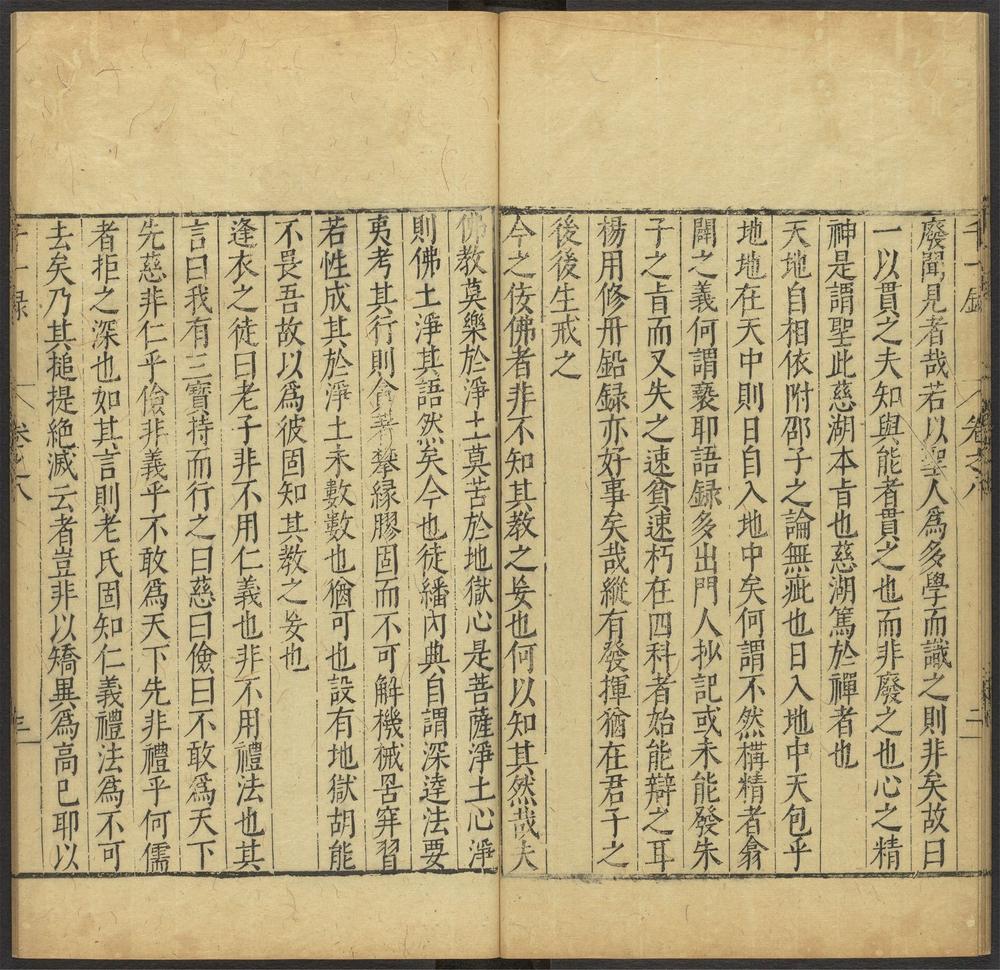 千一錄
卷之八
二
廢聞見者哉若以聖人爲多學而識之則非矣故曰
一以貫之夫知與能者貫之也而非廢之也心之精
神是謂聖此慈湖本旨也慈湖篤於禪者也
天地自相依附邵子之論無疵也日入地中天包乎
地地在天中則日自入地中矣何謂不然構精者翕
闢之義何謂褻耶語録多出門人抄記或未能發朱
子之旨而又失之速貧速朽在四科者始能辯之耳
楊用修丹鉛録亦好事矣哉縱有發揮猶在君子之
後後生戒之
今之佞佛者非不知其教之妄也何以知其然哉夫
佛教莫樂於淨土莫苦於地獄心是菩薩淨土心淨
則佛土淨其語然矣今也徒繙內典自謂深達法要
夷考其行則貪攀緣膠固而不可解機械罟穽習
若性成其於淨土未數數也猶可也設有地獄胡能
不畏吾故以爲彼固知其教之妄也
逢衣之徒曰老子非不用仁義也非不用禮法也其
言曰我有三寶持而行之曰慈曰儉曰不敢爲天下
先慈非仁乎儉非義乎不敢爲天下先非禮乎何儒
者拒之深也如其言則老氏固知仁義禮法爲不可
去矣乃其搥提絶滅云者豈非以矯異爲高已耶以
千一録
卷之八
三